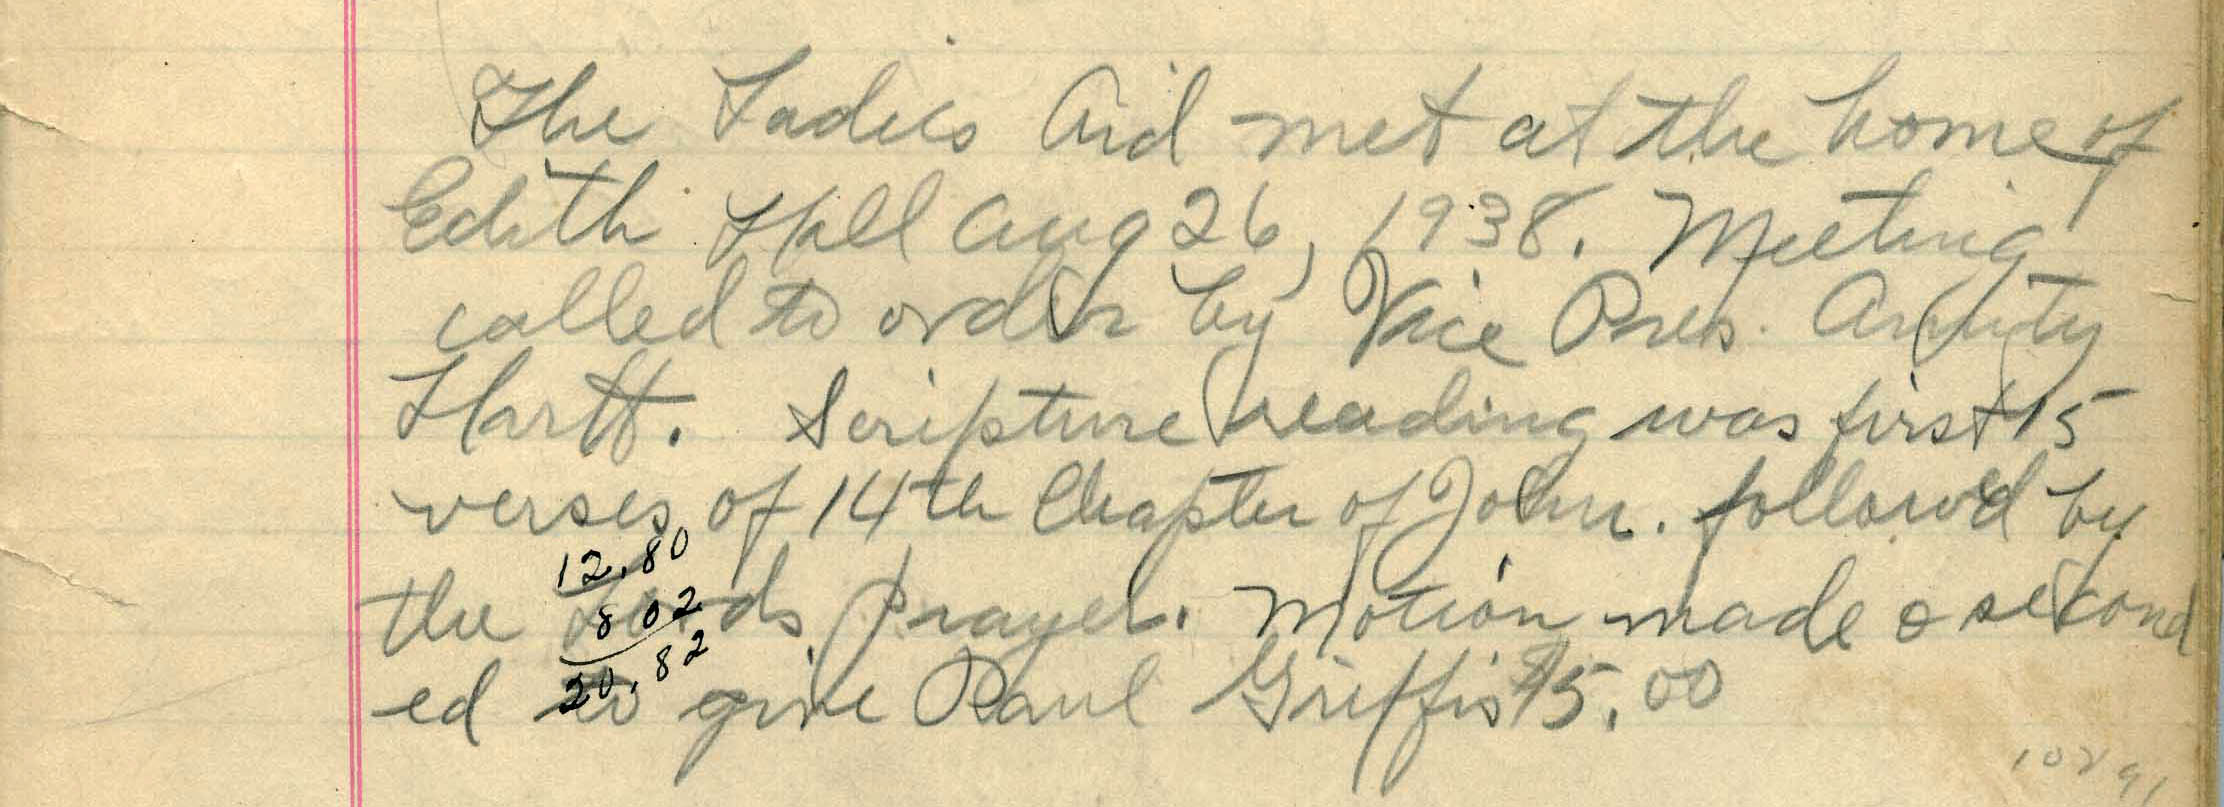 The Ladies Aid met at the home of
Edith Hall Aug 26, 1938. Meeting
called to order by Vice Pres.
Hartt. Scripture reading was first 15
verses of 14th Chapter of John. followed by
12.80
the Lords prayer. Motion made & second
8 02
ed to give Paul Griffis $5.00
20.82